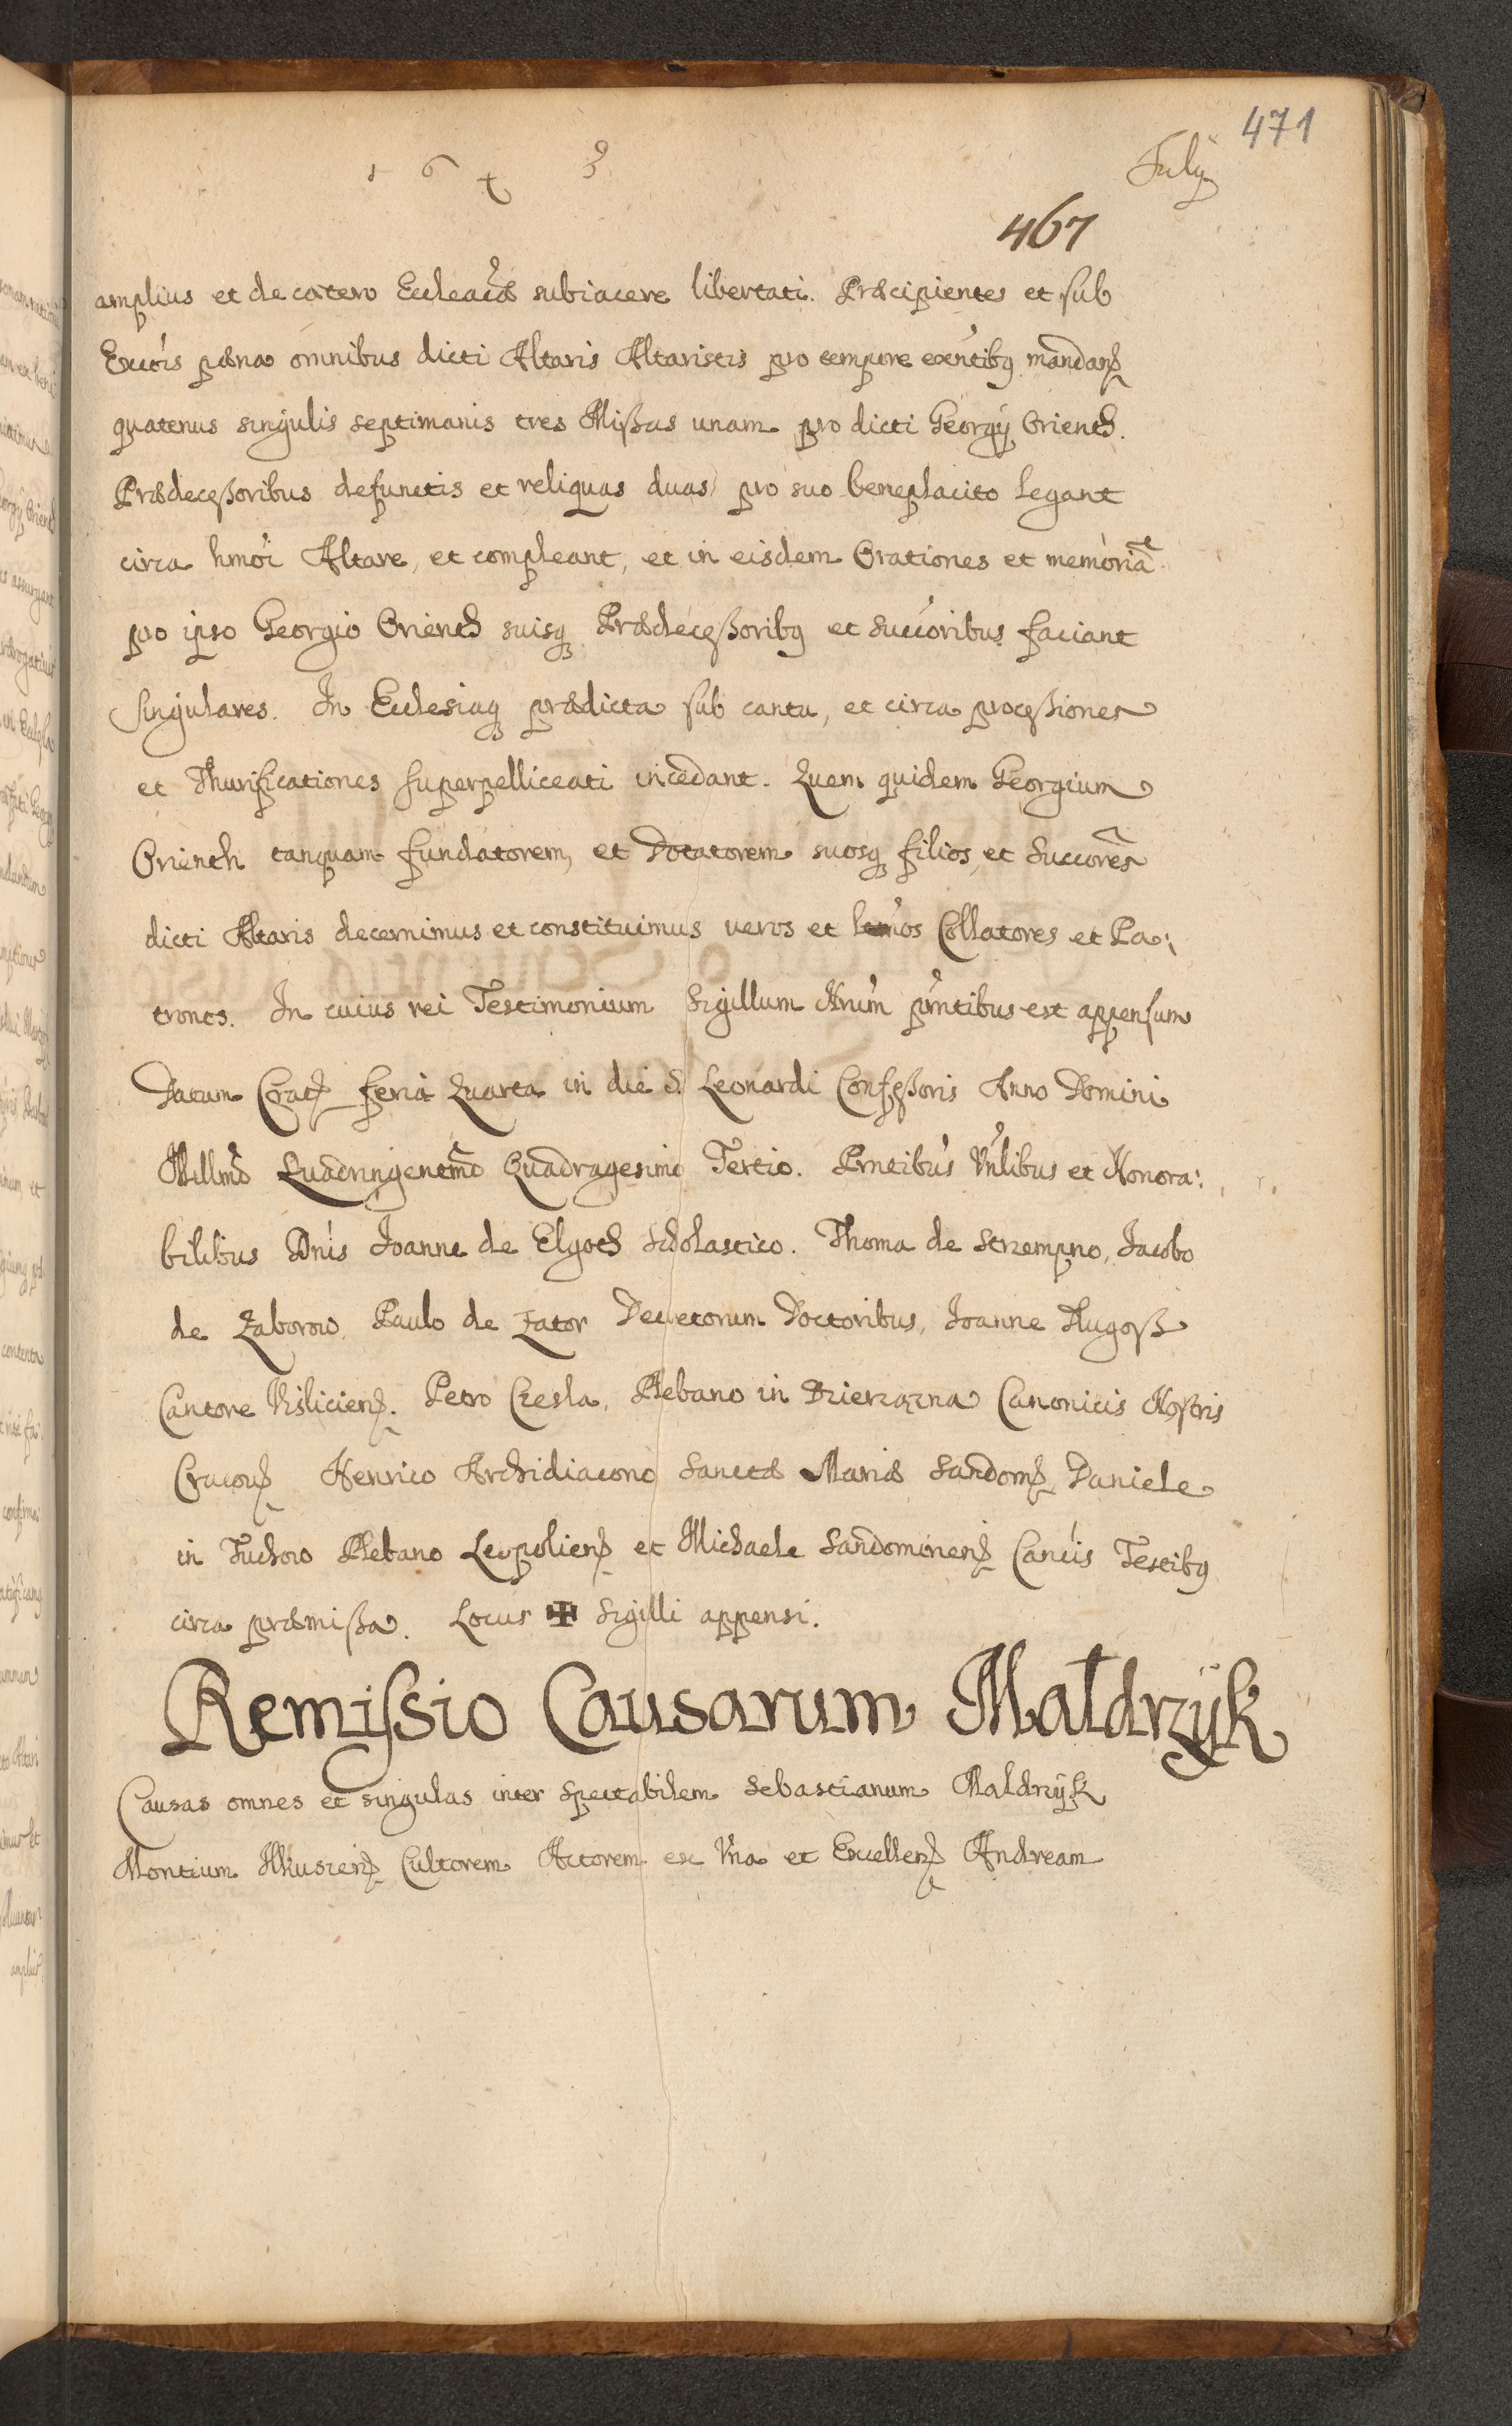 471
1 6 4 3 July
467
amplius et de cætero Eccleacæ subiacere libertati. Præcipientes et sub
Excõis pœna omnibus dicti Altaris Altaristis pro tempore exñtibꝫ mandanꝭ
quatenus singulis septimanis tres Mißas unam pro dicti Georgij Orienth.
Prædeceßoribus defunctis et reliquas duas pro suo beneplacito legant
circa hmõi Altare, et compleant, et in eisdem Orationes et memoriã
pro ipso Georgio Orienth suisqꝫ Prædeceßoribꝫ et Succõribus faciant
singulares. In Ecclesiaqꝫ prædicta sub cantu, et circa proceßiones
et Thurificationes superpelliceati incedant. Quem quidem Georgium
Orienth tanquam fundatorem, et Dotatorem suosqꝫ filios, et Succorẽs
dicti Altaris decernimus et constituimus veros et Collatores et Pa:
tronos. In cuius rei Testimonium Sigillum Nrũm pñtibus est appensum
Datum Cracꝭ feria Quarta in die S. Leonardi Confeßoris Anno Domini
Millmõ Quadringentmõ Quadragesimo Tertio. Pñtibus Vñlibus et Honora:
bilibus Dñis Joanne de Elgoth Scholastico. Thoma de Strzempno, Jacobo
de Zaborow, Paulo de Zator Decretorum Doctoribus, Joanne Dlugoss
Cantore Visliciensꝭ. Petro Czesla, Plebano in Dzierzązna Canonicis Nostris
Cracovꝭ Henrico Archidiacono Sanctæ Mariæ Sandomꝭ, Daniele
in Tuchow Plebano Leopoliensꝭ et Michaele Sandomirienꝭ Canõis Testibꝫ
circa præmißa. Locus ✠ Sigilli appensi.
Remissio Causarum Małdrzyk
Causas omnes et singulas inter Spectabilem Sebastianum Maldrzyk
Montium Ilkusienꝭ Cultorem Actorem ex Vna et Excellenꝭ Andream